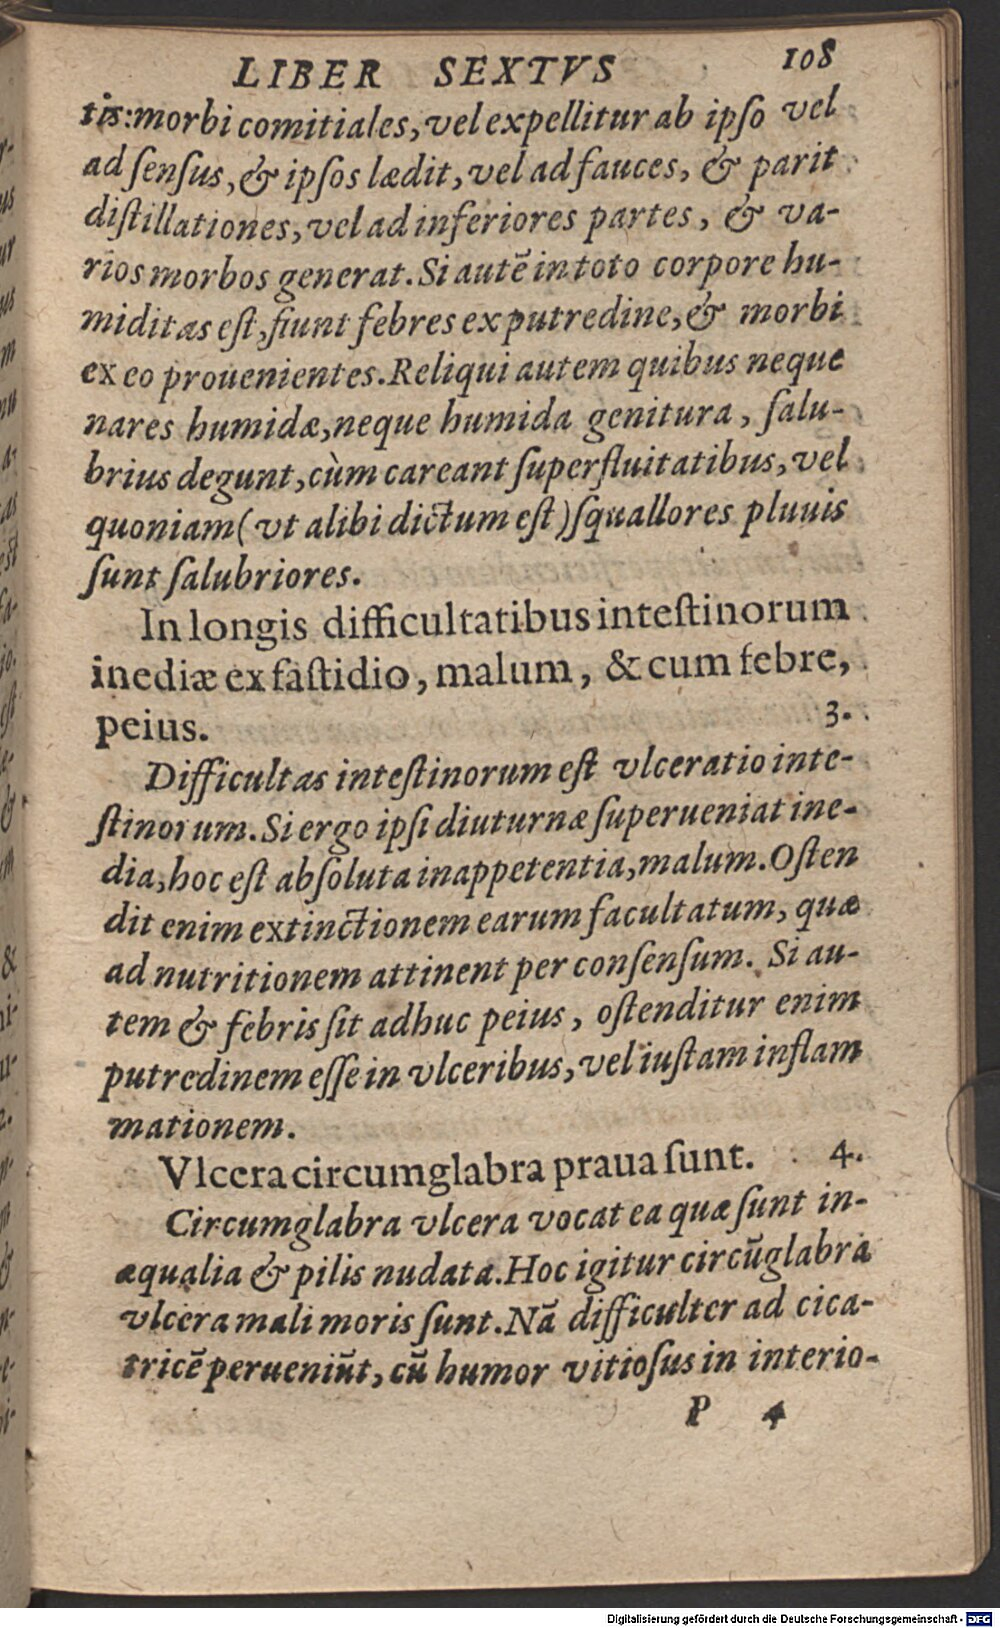 LIBER SEXTVS 108
tis: morbi comitiales, vel expellitur ab ipſo vel
ad ſenſus, & ipſos lædit, vel ad fauces, & parit
diſtillationes, vel ad inferiores partes, & va-
rios morbos generat. Si autē in toto corpore hu-
miditas eſt, fiunt febres ex putredine, & morbi
ex eo prouenientes. Reliqui autem quibus neque
nares humidæ, neque humida genitura, ſalu-
brius degunt, cùm careant ſuperfluitatibus, vel
quoniam (vt alibi dictum eſt) ſquallores pluuis
ſunt ſalubriores.
In longis difficultatibus inteſtinorum
inediæ ex faſtidio, malum, & cum febre,
peius. 3.
Difficultas inteſtinorum eſt vlceratio inte-
ſtinorum. Si ergo ipſi diuturnæ ſuperueniat ine-
dia, hoc eſt abſoluta inappetentia, malum. Oſten
dit enim extinctionem earum facultatum, quæ
ad nutritionem attinent per conſenſum. Si au-
tem & febris ſit adhuc peius, oſtenditur enim
putredinem eſſe in vlceribus, vel iuſtam inflam
mationem.
Vlcera circumglabra praua ſunt. 4.
Circumglabra vlcera vocat ea quæ ſunt in-
æqualia & pilis nudata. Hoc igitur circūglabra
vlcera mali moris ſunt. Nā difficulter ad cica-
tricē perueniūt, cū humor vitioſus in interio-
P 4
Digitalisierung gefördert durch die Deutsche Forschungsgemeinschaft - DFG